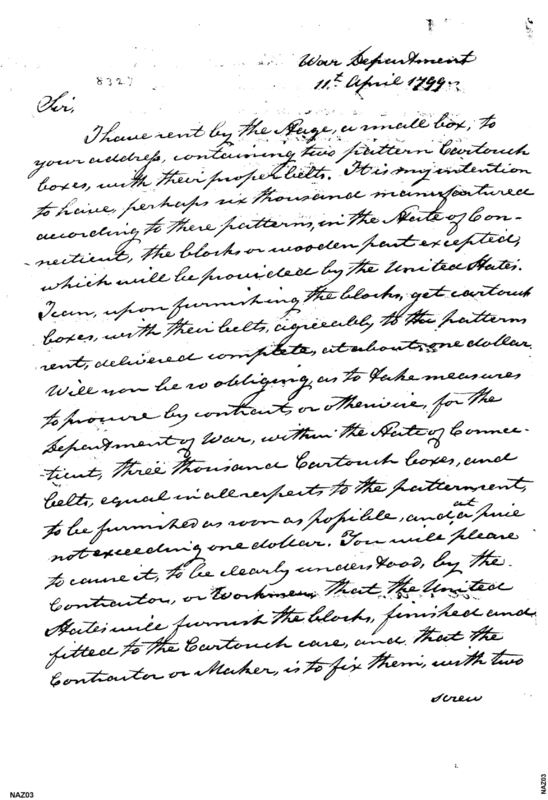 War Department
8327
11th April 1799
Sir,
I have sent by the Stage, a small box, to
your address, containing two pattern Cartouch
boxes, with their proper belts. It is my intention
to have, perhaps six thousand manufactured
according to these patterns, in the State of Con-
-necticut, the blocks or wooden part excepted,
which will be provided by the United States.
I can, upon furnishing the blocks, get cartouch
boxes, with their belts, agreeably to the patterns
sent, delivered complete, at about one dollar.
Will you be so obliging, as to take measures
to procure by contract, or otherwise, for the
Department of War, within the State of Connec-
-ticut, three thousand Cartouch boxes, and
belts, equal in all respects to the patterns sent,
to be furnished as soon as possible, and at a price
not exceeding one dollar. You will please
to cause it, to be clearly understood, by the
Contractor, or Workmen, that the United
States will furnish the blocks, finished and
fitted to the Cartouch case, and that the
Contractor or Maker, is to fix them, with two
screw
NAZ03
NAZ03